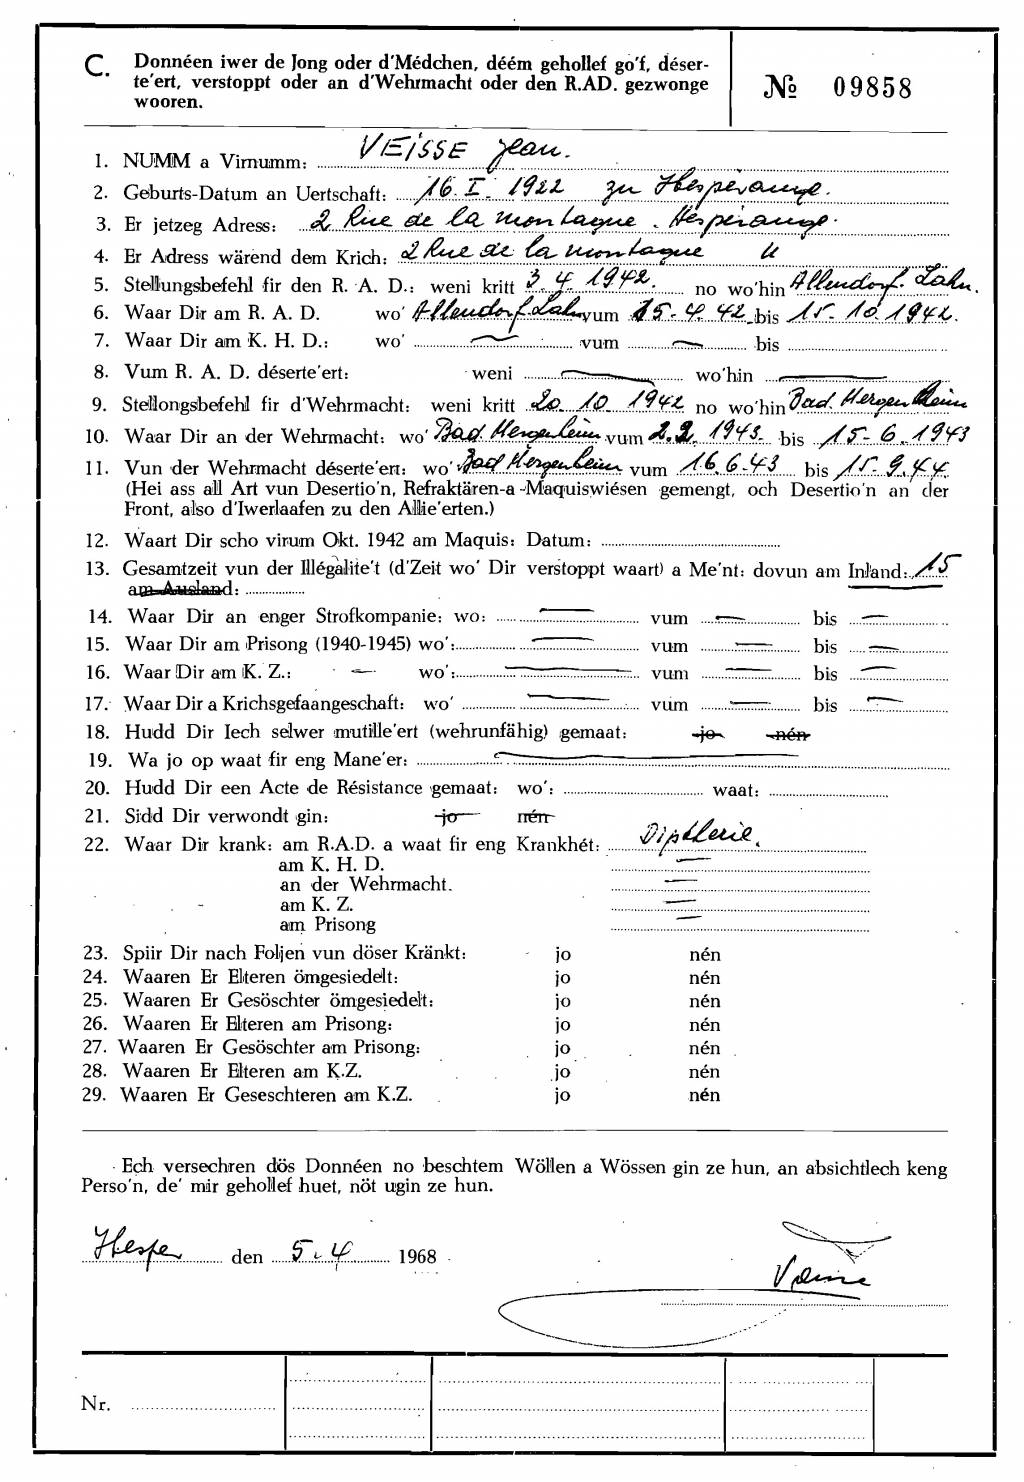 C. Donnéen iwer de Jong oder d'Médchen, déém gehollef go'f, déser-
te'ert, verstoppt oder an d'Wehrmacht oder den R.AD. gezwonge
wooren.
№ 09858
1. NUMM a Virnumm: VEISSE Jean.
2. Geburts-Datum an Uertschaft: 16. I. 1922 zu Hesperange.
3. Er jetzeg Adress: 2 Rue de la montagne. Hesperange.
4. Er Adress wärend dem Krich: 2 Rue de la montagne "
5. Stellungsbefehl fir den R. A. D.: weni kritt 3. 4. 1942. no wo'hin Allendorf. Lahn.
6. Waar Dir am R. A. D. wo' Allendorf Lahn vum 15-4. 42. bis 15-10. 1942.
7. Waar Dir am K. H. D.: wo' vum bis
8. Vum R. A. D. déserte'ert: weni wo'hin
9. Stellongsbefehl fir d'Wehrmacht: weni kritt 20. 10. 1942 no wo'hin Bad. Mergentheim
10. Waar Dir an der Wehrmacht: wo' Bad. Mergentheim vum 2.2. 1943. bis 15-6. 1943
11. Vun der Wehrmacht déserte'ert: wo' Bad Mergentheim vum 16.6.43 bis 15-9.44.
(Hei ass all Art vun Desertio'n, Refraktären-a-Maquiswiésen gemengt, och Desertio'n an der
Front, also d'Iwerlaafen zu den Allie'erten.)
12. Waart Dir scho virum Okt. 1942 am Maquis: Datum:
13. Gesamtzeit vun der Illégalite't (d'Zeit wo' Dir verstoppt waart) a Me'nt: dovun am Inland: 15
am Ausland:
14. Waar Dir an enger Strofkompanie: wo: vum bis
15. Waar Dir am Prisong (1940-1945) wo': vum bis
16. Waar Dir am K. Z.: wo': vum bis
17. Waar Dir a Krichsgefaangeschaft: wo' vum bis
18. Hudd Dir Iech selwer mutille'ert (wehrunfähig) gemaat: jo nén
19. Wa jo op waat fir eng Mane'er:
20. Hudd Dir een Acte de Résistance gemaat: wo': waat:
21. Sidd Dir verwondt gin: jo nén
22. Waar Dir krank: am R.A.D. a waat fir eng Krankhét: Diptherie.
am K. H. D.
an der Wehrmacht.
am K. Z.
am Prisong
23. Spiir Dir nach Foljen vun döser Kränkt: jo nén
24. Waaren Er Elteren ömgesiedelt: jo nén
25. Waaren Er Gesöschter ömgesiedelt: jo nén
26. Waaren Er Elteren am Prisong: jo nén
27. Waaren Er Gesöschter am Prisong: jo nén
28. Waaren Er Elteren am K.Z. jo nén
29. Waaren Er Geseschteren am K.Z. jo nén
Ech versechren dös Donnéen no beschtem Wöllen a Wössen gin ze hun, an absichtlech keng
Perso'n, de' mir gehollef huet, nöt ugin ze hun.
Hesper den 5. 4 1968
Nr.